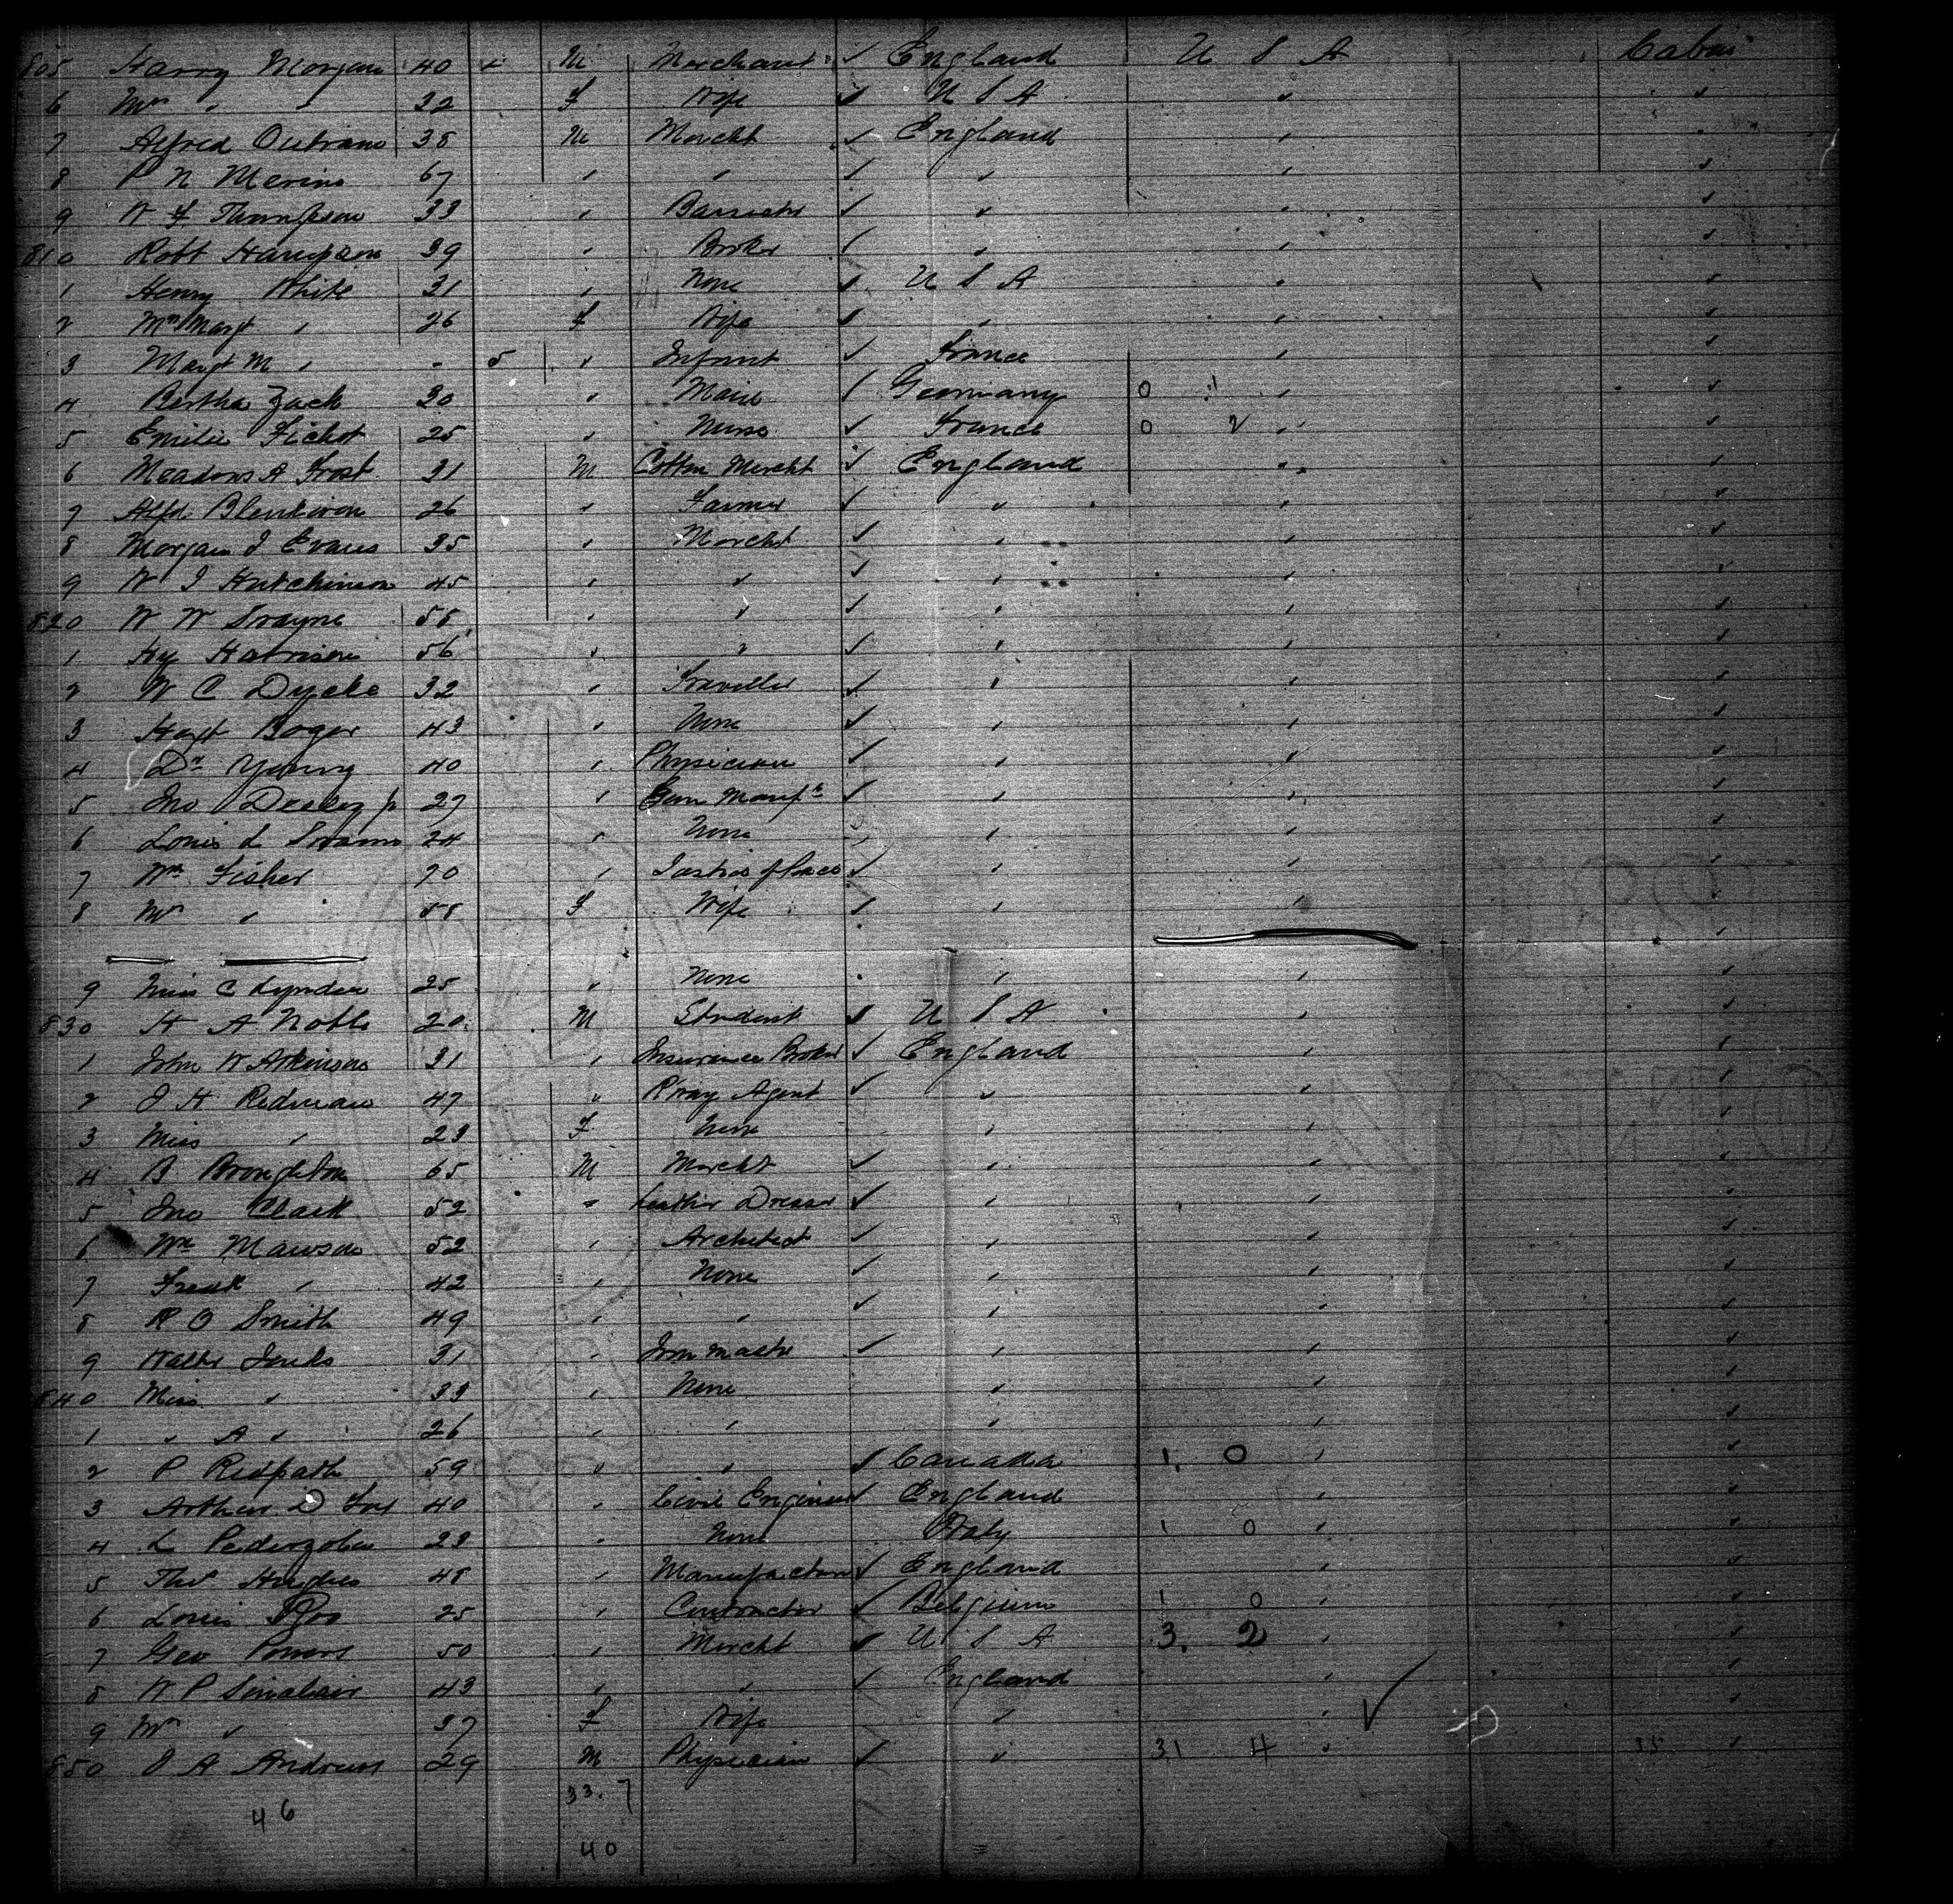 805 Harry Morgan 40 M Merchant ✓ England U S A Cabin
6 Mrs " 32 F Wife ✓ U S A "
7 Alfred Outram 38 M Mercht ✓ England "
8 P N Merino 67 " " ✓ " "
9 W F Thompson 33 " Barrister ✓ " "
810 Robt Hampson 39 " Broker " "
1 Henry White 31 " None ✓ U S A "
2 Mrs Margt " 26 F Wife ✓ " "
3 Margt M " - 5 " Infant ✓ France "
4 Bertha Zack 30 " Maid Germany 0 1 "
5 Emilie Fichot 25 " Nurse ✓ France 0 2 "
6 Meadows A Frost 31 M Cotton Mercht ✓ England "
7 Alfd. Blenkiron 26 " Farmer ✓ " "
8 Morgan J Evans 35 " Mercht ✓ " "
9 W J Hutchinson 45 " " ✓ " "
820 W W Swayne 55 " " ✓ " "
1 Hy Harrison 56 " " ✓ " "
2 W C Dycke 32 " Traveller ✓ " "
3 Boger 43 " None ✓ " "
4 Dr Young 40 " Physician ✓ " "
5 Jno Jr 27 " ✓ " "
6 Louis L 24 " None " "
7 Wm Fisher 70 " Justice of Peace ✓ " "
8 Mrs " F Wife ✓ " "
9 Miss C 25 " None " "
830 H A Noble 20 M Student ✓ U S A "
1 John W Atkinson 31 " Insurance Broker ✓ England "
2 J H Redman 47 " R'way Agent ✓ " "
3 Miss " 23 F None " "
4 B Broughton 65 M Mercht ✓ " "
5 Jno Clark 52 " Leather Dresser ✓ " "
6 Wm Mawson 52 " Architect ✓ " "
7 Fredk " 42 " None ✓ " "
8 R O Smith 49 " " ✓ " "
9 Walter Jenks 31 " Iron Master ✓ " "
840 Miss " 33 " None " "
1 " A " 26 " " " "
2 P Redpath 59 " " ✓ Canada 1. 0 "
3 Arthur D 40 " Civil Engineer ✓ England "
4 L 23 " None Italy 1 0 "
5 Thos Hughes 48 " Manufacturer ✓ England "
6 Louis Roo 25 " Contractor ✓ Belgium 1 0 "
7 Geo Powers 50 " Mercht ✓ U S A 3. 2 "
8 W P Sinclair 43 " " ✓ England "
9 Mrs " 37 F Wife " " ✓
850 J A Andrews 29 M Physician ✓ " 31 4 " 35 "
33. 7
46
40